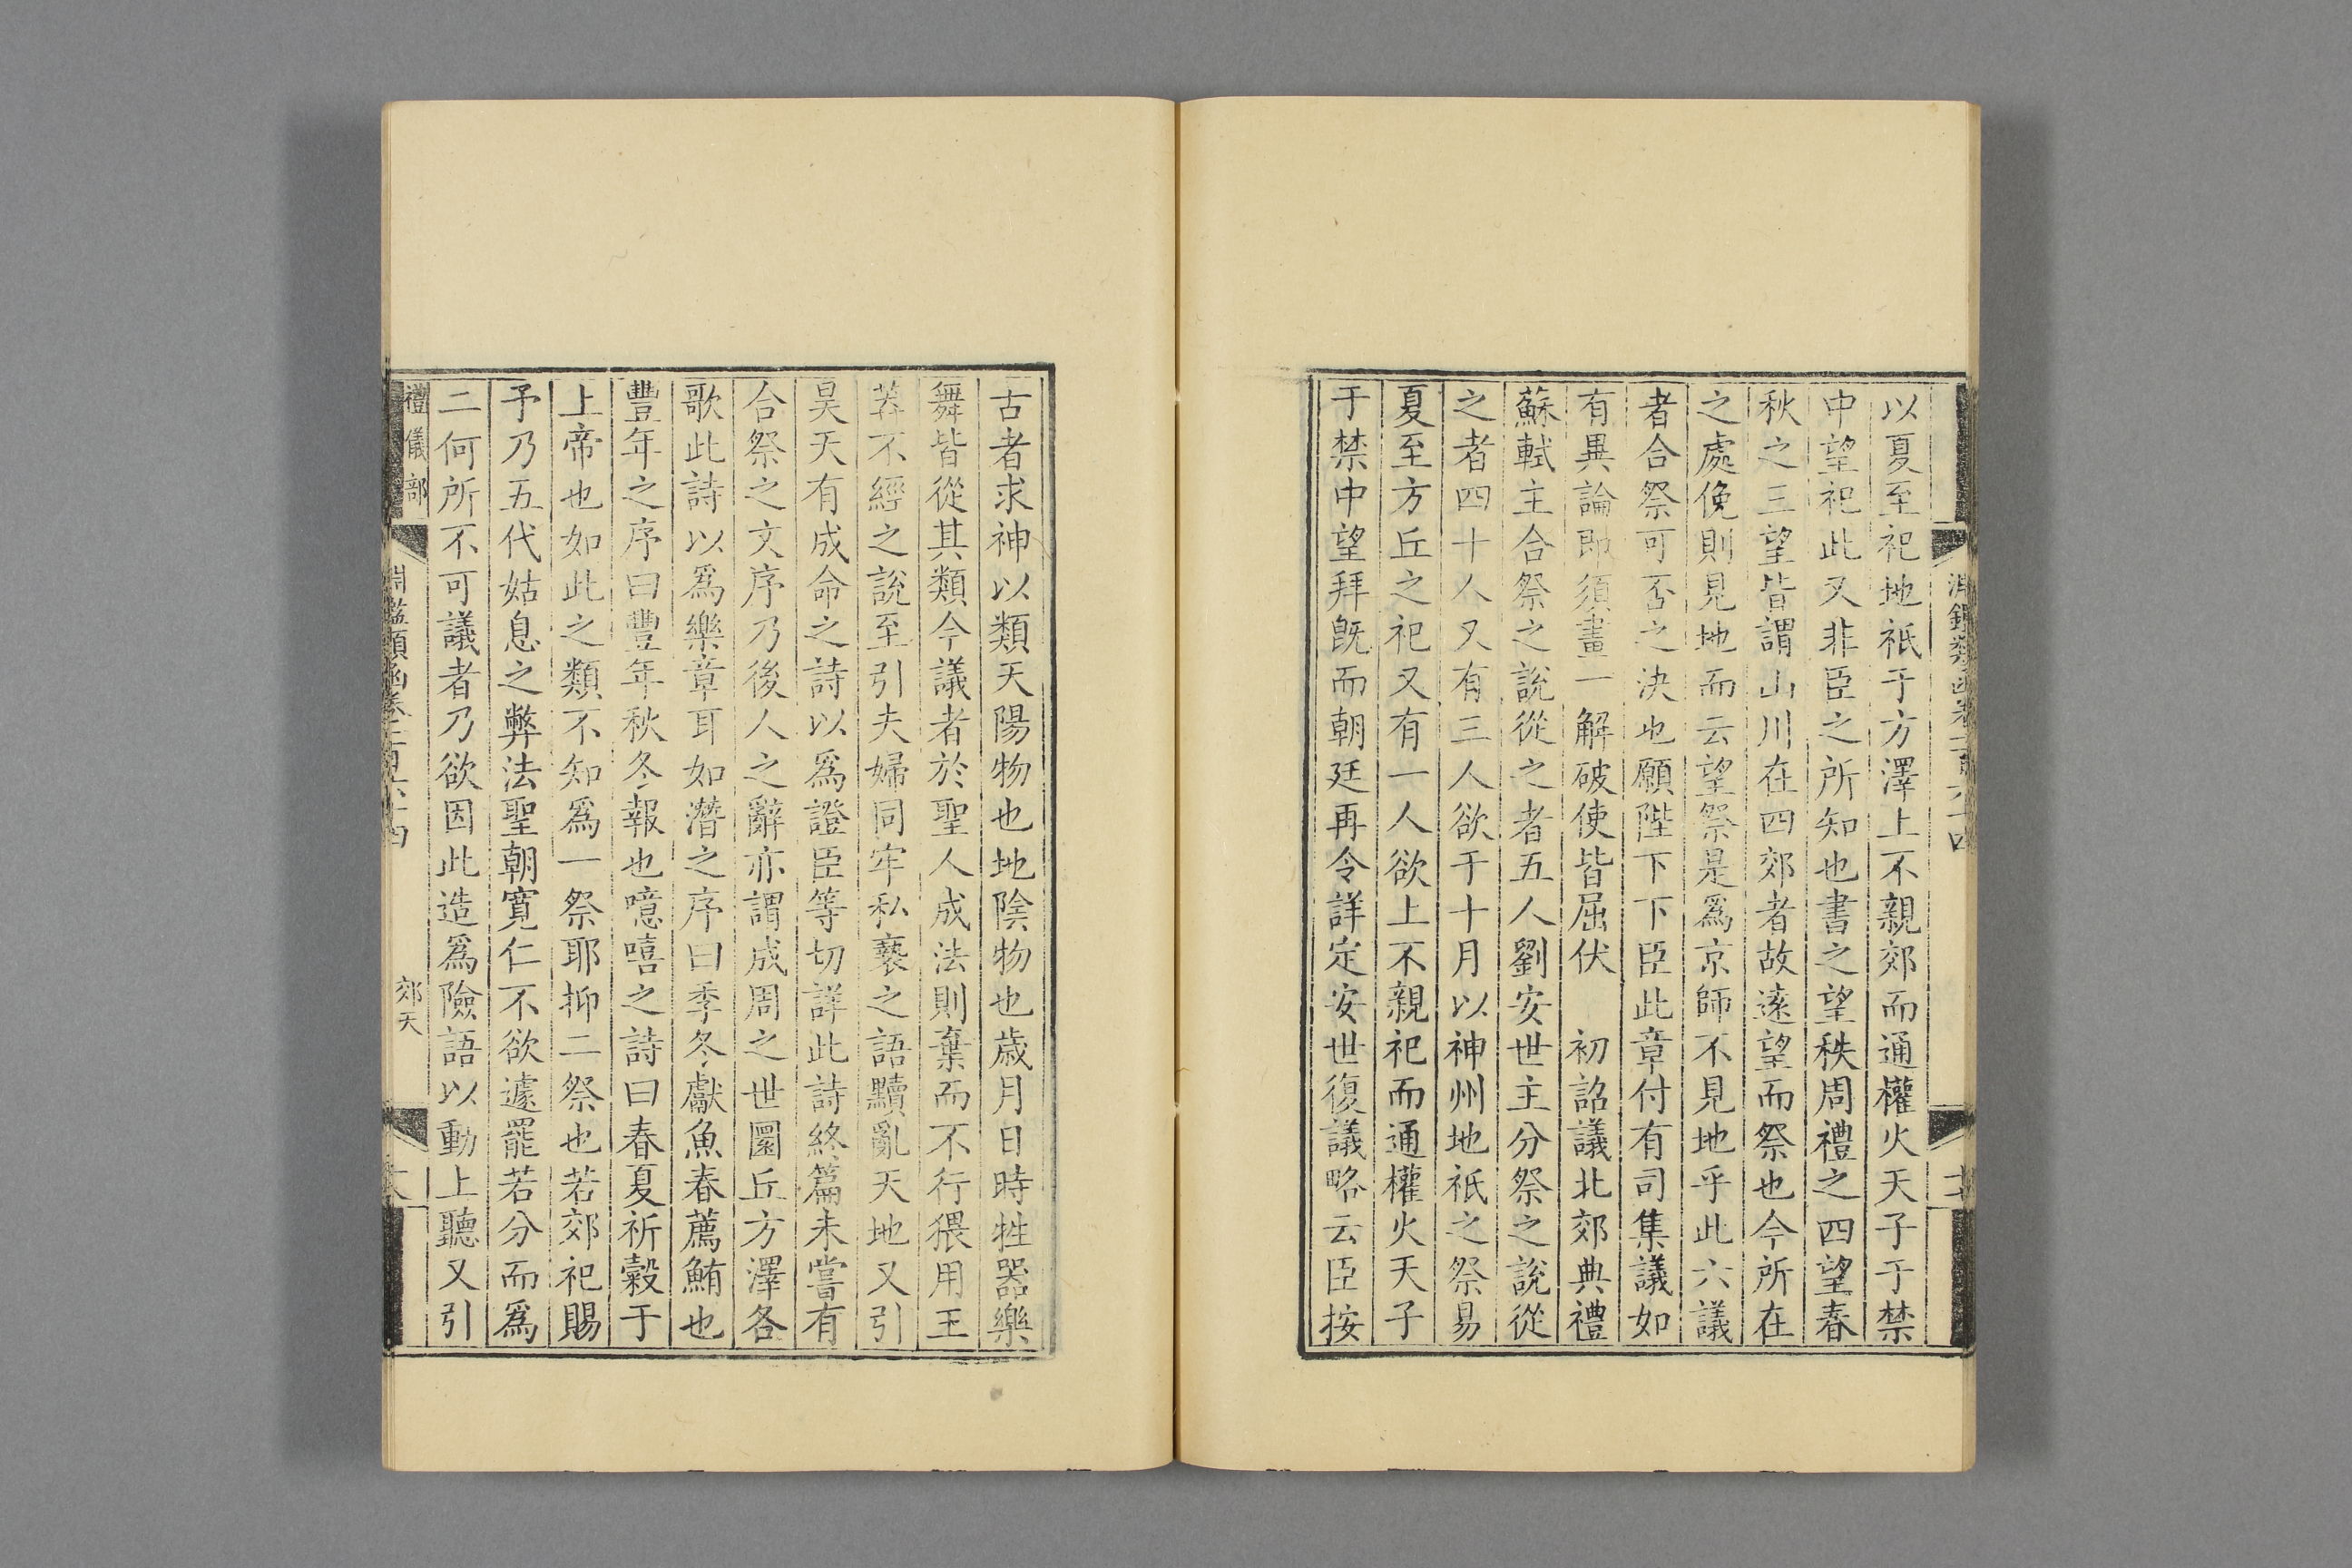 以夏至祀地祇于方澤上不親郊而通權火天子于禁
中望祀此又非臣之所知也書之望秩周禮之四望春
秋之三望皆謂山川在四郊者故遠望而祭也今所在
之處俛則見地而云望祭是爲京師不見地乎此六議
者合祭可否之決也願陛下下臣此章付有司集議如
有異論即須畫一解破使皆屈伏　初詔議北郊典禮
蘇軾主合祭之說從之者五人劉安世主分祭之說從
之者四十人又有三人欲于十月以神州地祇之祭易
夏至方丘之祀又有一人欲上不親祀而通權火天子
于禁中望拜旣而朝廷再令詳定安世復議略云臣按
古者求神以類天陽物也地陰物也歲月日時牲器樂
舞皆從其類今議者於聖人成法則棄而不行猥用王
莽不經之說至引夫婦同牢私褻之語黷亂天地又引
昊天有成命之詩以爲證臣等切詳此詩終篇未嘗有
合祭之文序乃後人之辭亦謂成周之世圜丘方澤各
歌此詩以爲樂章耳如潛之序曰季冬獻魚春薦鮪也
豐年之序曰豐年秋冬報也噫嘻之詩曰春夏祈穀于
上帝也如此之類不知爲一祭耶抑二祭也若郊祀賜
予乃五代姑息之弊法聖朝寬仁不欲遽罷若分而爲
二何所不可議者乃欲因此造爲險語以動上聽又引
禮儀部
郊天